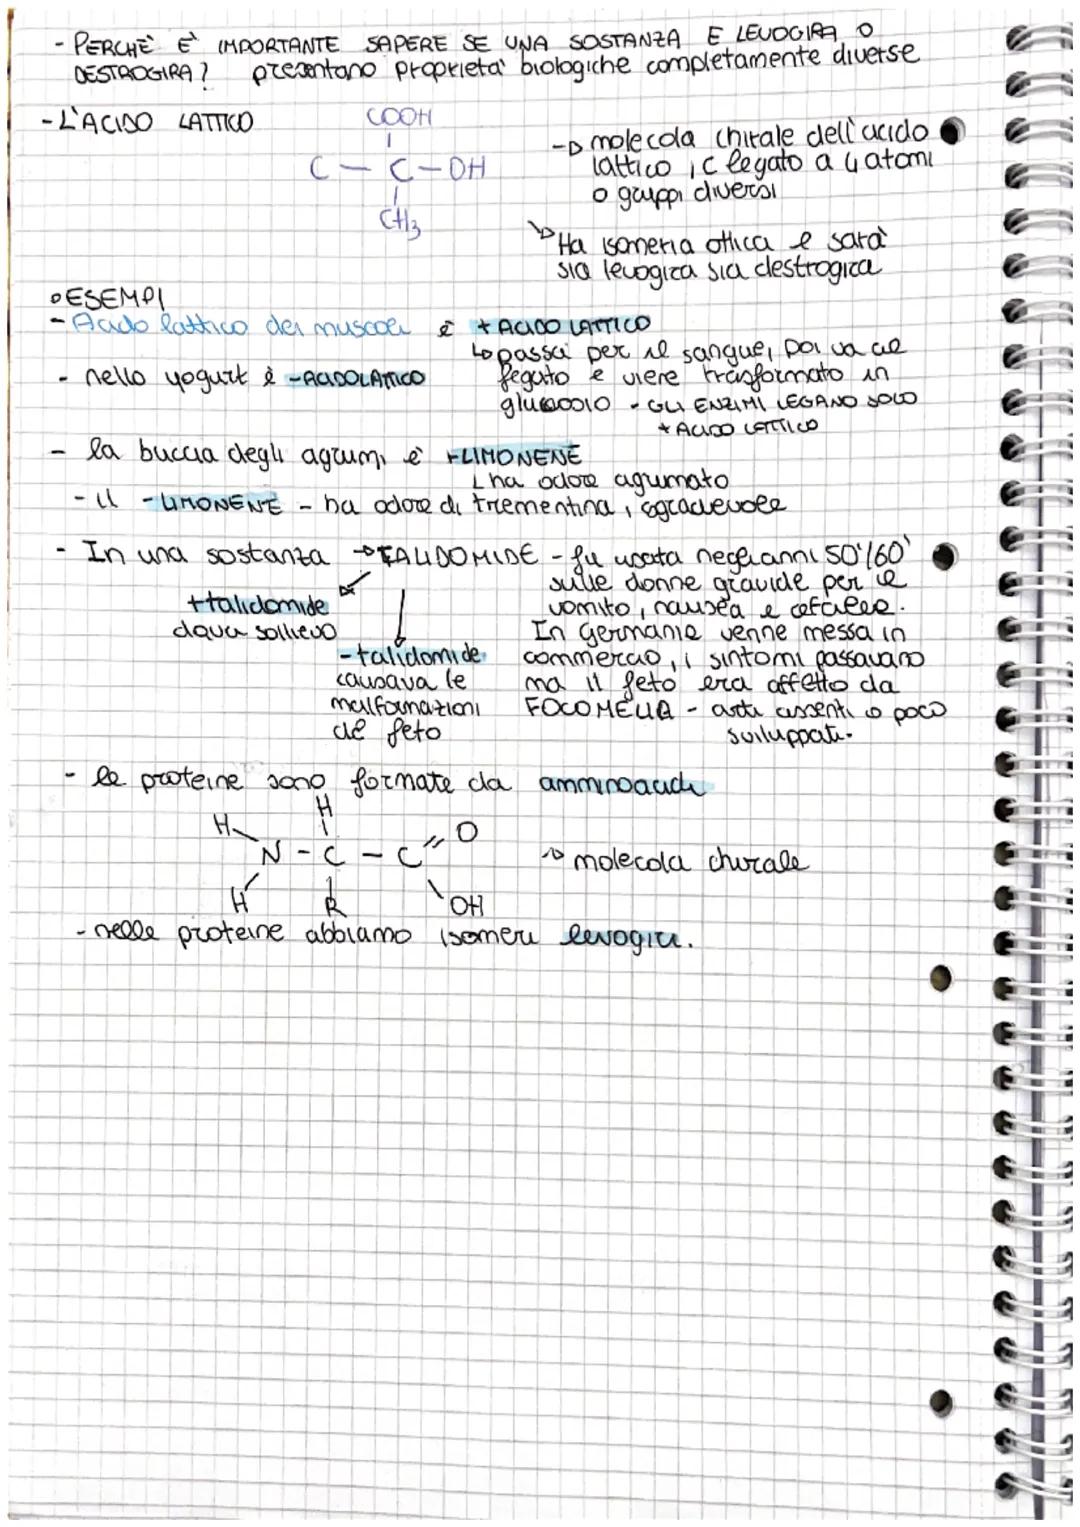 - PERCHÈ È IMPORTANTE SAPERE SE UNA SOSTANZA E LEVOGIRA O
DESTROGIRA? presentano proprietà biologiche completamente diverse
- L'ACIDO LATTICO
COOH
C - C - OH
CH3
→ molecola chirale dell'acido
lattico, C legato a 4 atomi
o gruppi diversi
Ha isomeria ottica e sarà
sia levogira sia destrogira
ESEMPI
- Acido lattico dei muscoli è + ACIDO LATTICO
passa per il sangue, poi va al
fegato e viene trasformato in
glucosio - GLI ENZIMI LEGANO SOLO
+ ACIDO LATTICO
- nello yogurt è - ACIDO LATTICO
- la buccia degli agrumi è + LIMONENE
ha odore agrumato
- il - LIMONENE - ha odore di trementina, sgradevole
- In una sostanza → TALIDOMIDE - fu usata negli anni 50'/60'
sulle donne gravide per il
vomito, nausea e cefalee.
In Germania venne messa in
commercio, i sintomi passavano
ma il feto era affetto da
FOCOMELIA - arti assenti o poco
sviluppati.
+ talidomide
dava sollievo
- talidomide
causava le
malformazioni
al feto
- le proteine sono formate da amminoacidi
H
H O
N - C - C
H R OH
→ molecola chirale
- nelle proteine abbiamo isomeri levogiri.